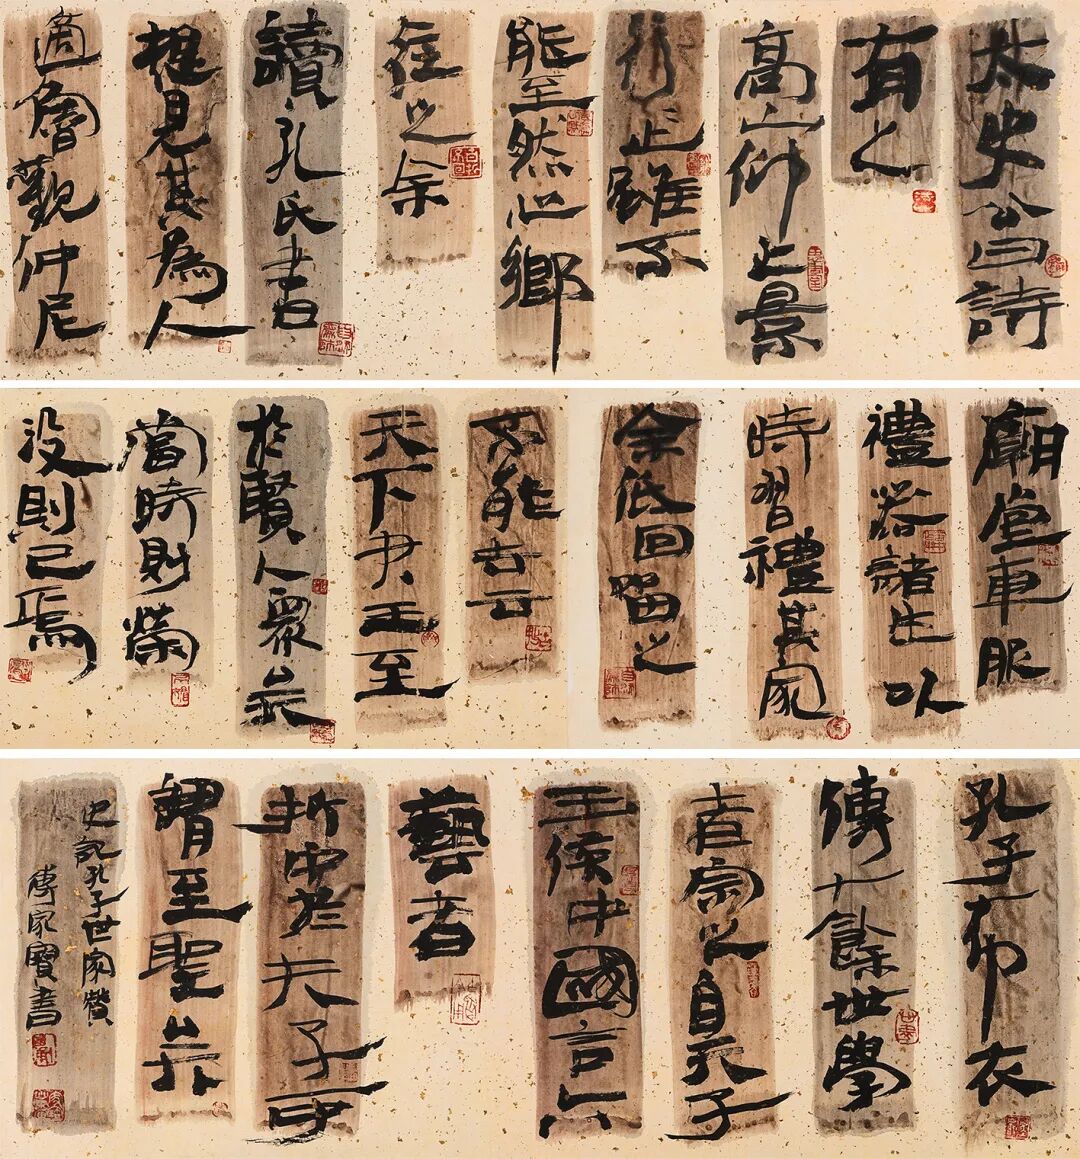 太史公曰詩
有之
高山仰止景
行止雖不
能至然心鄉
往之余
讀孔氏書
想見其為人
適魯觀仲尼
廟堂車服
禮器諸生以
時習禮其家
余低回留之
不能去云
天下君王至
於賢人眾矣
當時則榮
沒則已焉
孔子布衣
傳十餘世學
者宗之自天子
王侯中國言六
藝者
折中於夫子可
謂至聖矣
史記孔子世家贊
傅家寶書